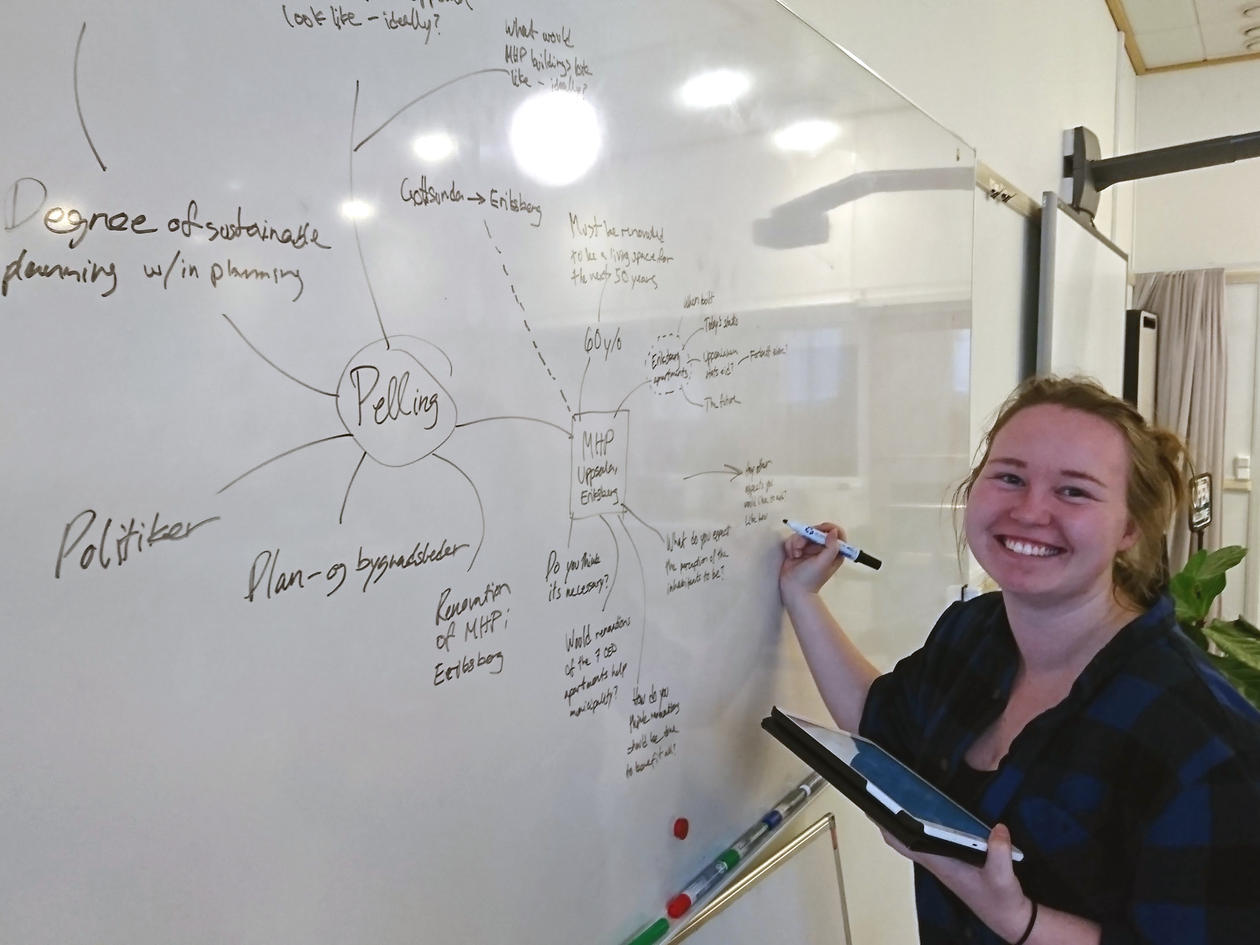 look like - ideally?
What would
MHP buildings look
like - ideally?
Degree of sustainable
planning w/in planning
Gottsunda → Eriksberg
Must be renovated
to be a living space for
the next 50 years
60 y/o
When built
Today's state
Eriksberg
apartments
The future
Pelling
MHP
Uppsala,
Eriksberg
Any other
aspects you
would like to add?
Politiker
Plan- og bygnadsleder
Renovation
of MHP i
Eriksberg
Do you think
its necessary?
What do you expect
the perception of the
inhabitants to be?
Would renovations
of the 7 000
apartments help
municipality?
How do you
think
should be done
to benefit all?
OPEN